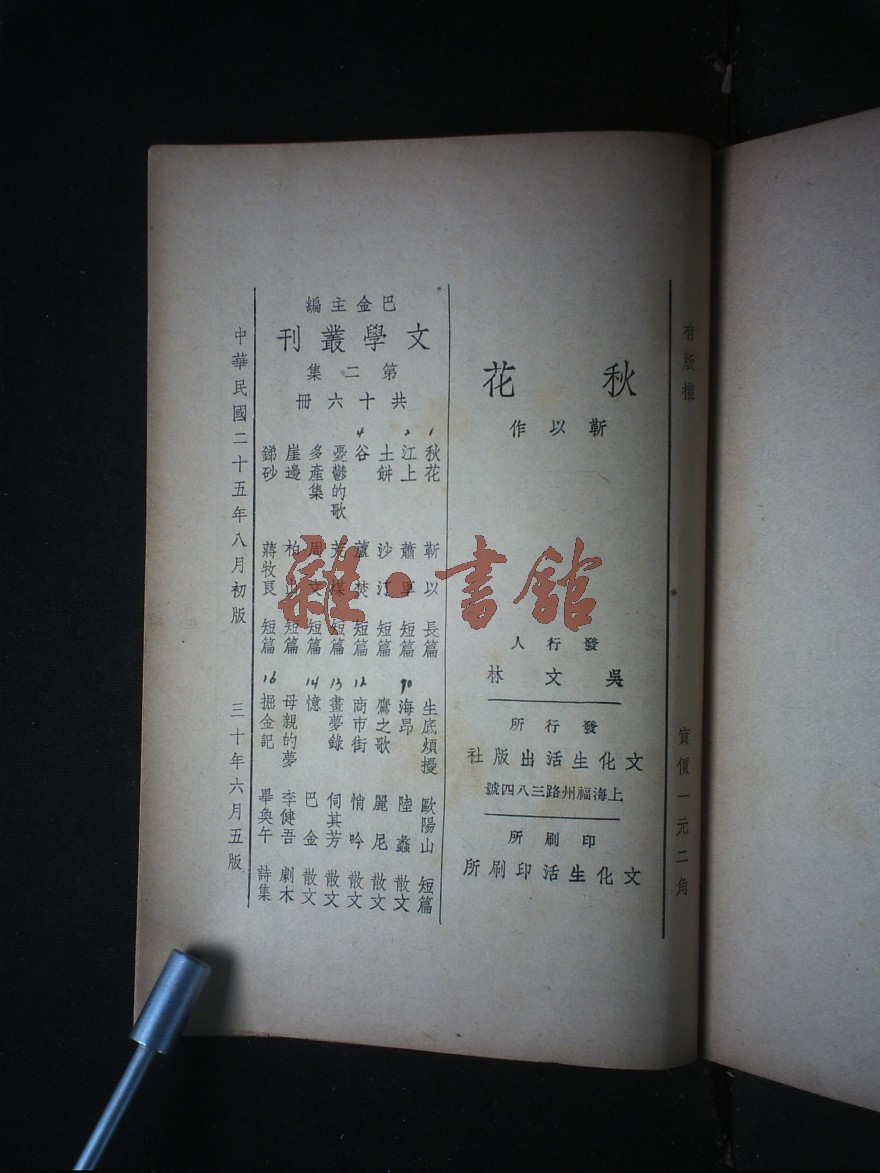 有版權
實價一元二角
秋花
靳以作
發行人
吳文林
發行所
文化生活出版社
上海福州路三八四號
印刷所
文化生活印刷所
巴金主編
文學叢刊
第二集
共十六冊
1 秋花 靳以 長篇
2 江上 蕭軍 短篇
土餅 沙汀 短篇
4 谷 蘆焚 短篇
憂鬱的歌 荒煤 短篇
多產集 周文 短篇
崖邊 柏山 短篇
銻砂 蔣牧良 短篇
生底煩擾 歐陽山 短篇
10 海昂 陸蠡 散文
鷹之歌 麗尼 散文
12 商市街 悄吟 散文
13 畫夢錄 何其芳 散文
14 憶 巴金 散文
母親的夢 李健吾 劇本
16 掘金記 畢奐午 詩集
中華民國二十五年八月初版
三十年六月五版
雜·書館